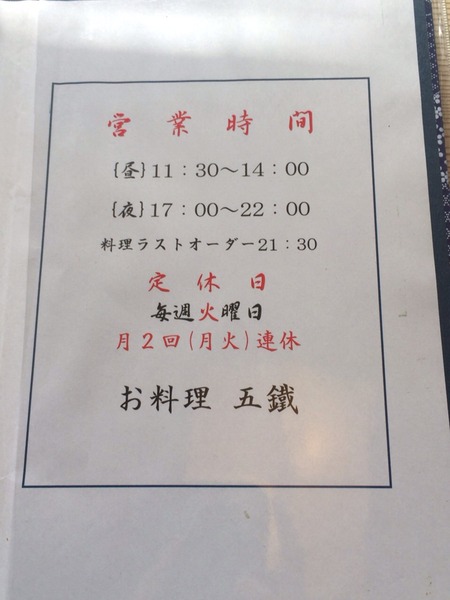 営業時間
{昼}11:30〜14:00
{夜}17:00〜22:00
料理ラストオーダー21:30
定休日
毎週火曜日
月2回(月火)連休
お料理 五鐵